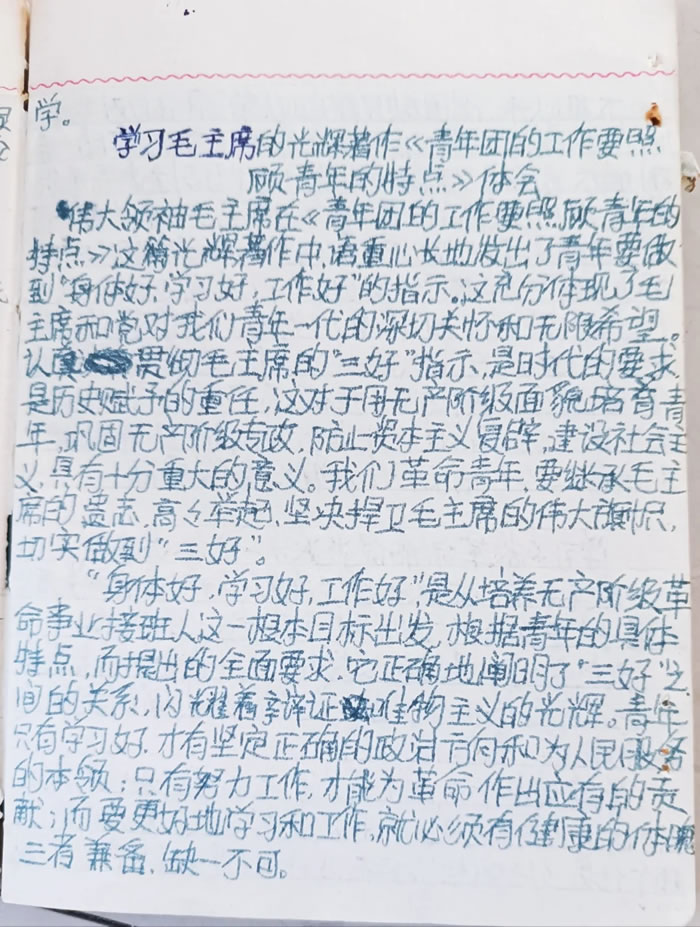 学。
学习毛主席的光辉著作《青年团的工作要照
顾青年的特点》体会
伟大领袖毛主席在《青年团的工作要照顾青年的
特点》这篇光辉著作中,语重心长地发出了青年要做
到“身体好,学习好,工作好”的指示。这充分体现了毛
主席和党对我们青年一代的深切关怀和无限希望。
认真贯彻毛主席的“三好”指示,是时代的要求,
是历史赋予的重任,这对于用无产阶级面貌培育青
年,巩固无产阶级专政,防止资本主义复辟,建设社会主
义,具有十分重大的意义。我们革命青年,要继承毛主
席的遗志,高々举起、坚决捍卫毛主席的伟大旗帜,
切实做到“三好”。
“身体好,学习好,工作好”,是从培养无产阶级革
命事业接班人这一根本目标出发,根据青年的具体
特点,而提出的全面要求,它正确地阐明了“三好”之
间的关系,闪耀着辛详证唯物主义的光辉。青年
只有学习好,才有坚定正确的政治方向和为人民服务
的本领;只有努力工作,才能为革命作出应有的贡
献;而要更好地学习和工作,就必须有健康的体魄
三者兼备,缺一不可。